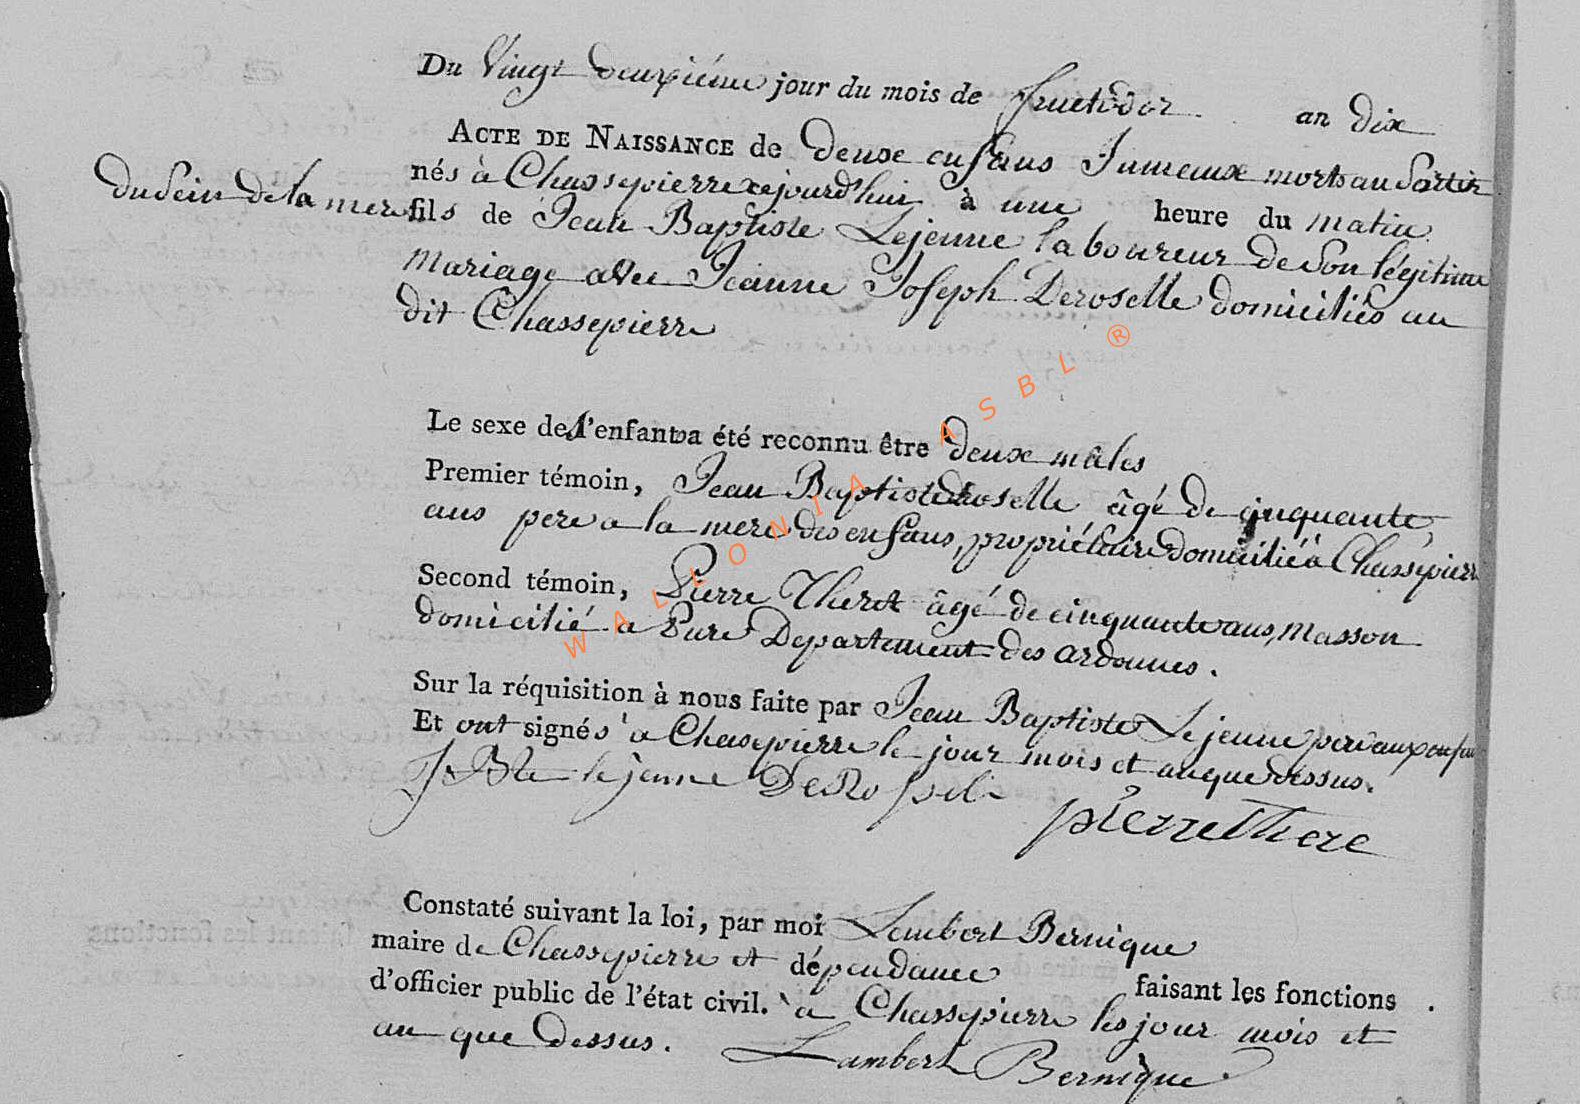 Du Vingt deuxiéme jour du mois de fructidor an dix
ACTE DE NAISSANCE de deuxe enfans Jumeaux morts au Sortir
du Sein de la mere
nés à Chassepierre cejourd'hui à une heure du matin
fils de Jean Baptiste Lejeune laboureur de Son légitime
mariage avec Jeanne Joseph Deroselle domiciliés au
dit Chassepierre
Le sexe des l'enfant a été reconnu être deuxe mâles
Premier témoin, Jean Baptiste deroselle âgé de cinquante
ans pere a la mere des enfans, propriétaire domicilié à Chassepierre
Second témoin, Pierre Theret âgé de cinquante ans, masson
domicilié a Pure Departement des ardennes.
Sur la réquisition à nous faite par Jean Baptiste Lejeune pere aux enfans
Et ont signés à Chasepierre le jour mois et an que dessus.
J Bte lejeune DeRossel pierre There
Constaté suivant la loi, par moi Lambert Bernique
maire de Chassepierre et dépendance faisant les fonctions
d'officier public de l'état civil. à Chassepierre les jour mois et
an que dessus. Lambert Bernique
WALLONIA ASBL ®